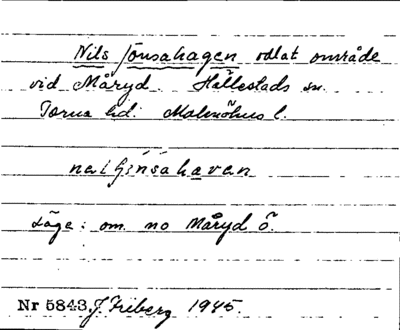 Nils Jönsahagen odlat område
vid Måryd. Hällestads sn.
Torna hd. Malmöhus l.
Läge: om. no Måryd ö.
Nr 5843, J. Friberg 1945.